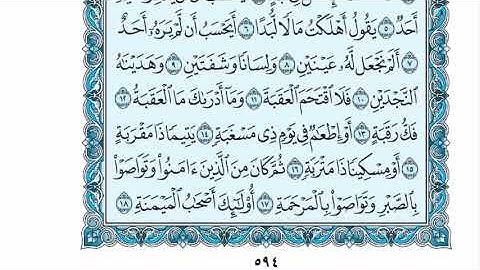 أَحَدٌ ۝٥ يَقُولُ أَهْلَكْتُ مَالًا لُّبَدًا ۝٦ أَيَحْسَبُ أَن لَّمْ يَرَهُۥٓ أَحَدٌ
۝٧ أَلَمْ نَجْعَل لَّهُۥ عَيْنَيْنِ ۝٨ وَلِسَانًا وَشَفَتَيْنِ ۝٩ وَهَدَيْنَٰهُ
ٱلنَّجْدَيْنِ ۝١٠ فَلَا ٱقْتَحَمَ ٱلْعَقَبَةَ ۝١١ وَمَآ أَدْرَىٰكَ مَا ٱلْعَقَبَةُ ۝١٢
فَكُّ رَقَبَةٍ ۝١٣ أَوْ إِطْعَٰمٌ فِى يَوْمٍ ذِى مَسْغَبَةٍ ۝١٤ يَتِيمًا ذَا مَقْرَبَةٍ
۝١٥ أَوْ مِسْكِينًا ذَا مَتْرَبَةٍ ۝١٦ ثُمَّ كَانَ مِنَ ٱلَّذِينَ ءَامَنُوا۟ وَتَوَاصَوْا۟
بِٱلصَّبْرِ وَتَوَاصَوْا۟ بِٱلْمَرْحَمَةِ ۝١٧ أُو۟لَٰٓئِكَ أَصْحَٰبُ ٱلْمَيْمَنَةِ ۝١٨
٥٩٤